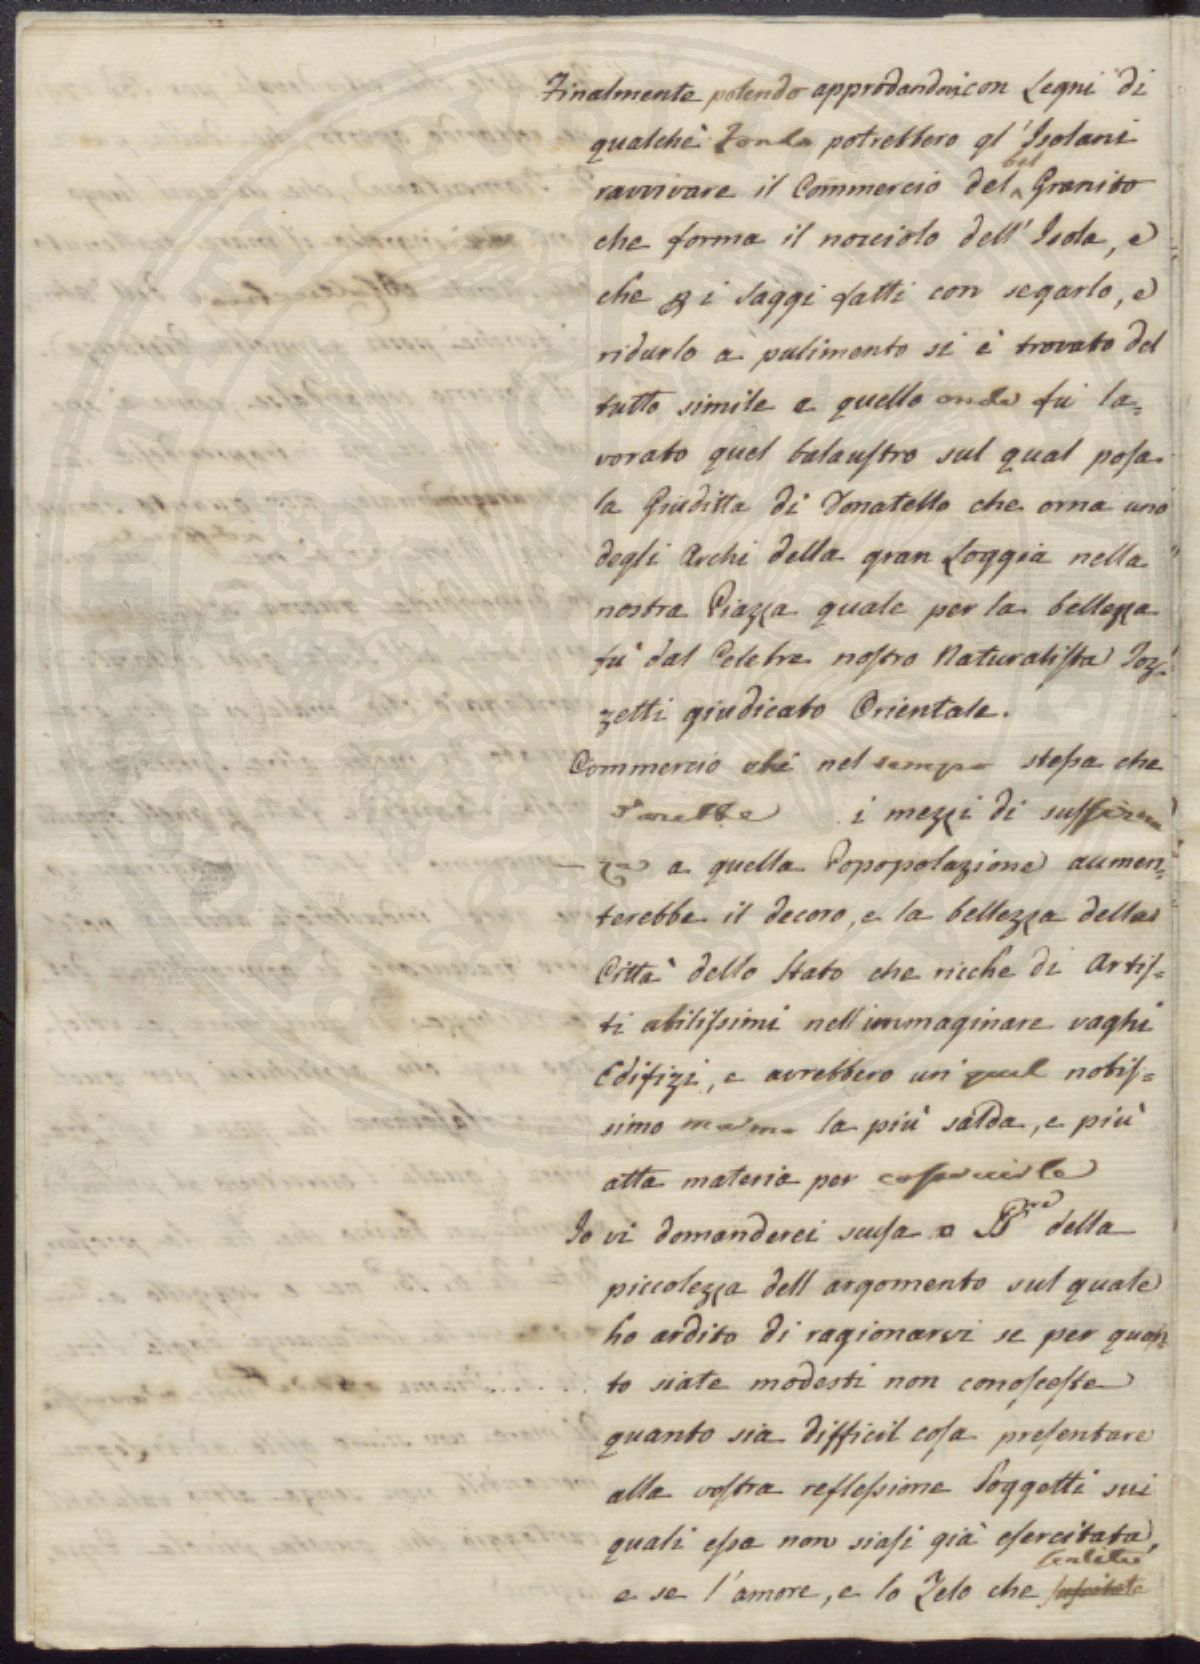 Finalmente potendo approdandovi con Legni di
qualche potrebbero gl'Isolani
ravvivare il Commercio del bel Granito
che forma il nocciolo dell'Isola, e
che p i saggi fatti con segarlo, e
ridurlo a pulimento si è trovato del
tutto simile a quello onde fù la=
vorato quel balaustro sul qual posa
la Giuditta di Donatello che orna uno
degli Archi della gran Loggia nella
nostra Piazza quale per la bellezza
fù dal Celebre nostro Naturalista Toz=
zetti giudicato Orientale.
Commercio che nel tempo stessa che
i mezzi di
a quella Popopolazione aumen=
terebbe il decoro, e la bellezza delle
Città dello Stato che ricche di Artis=
ti abilissimi nell'immaginare vaghi
Edifizi, e avrebbero un quel nobis=
simo marmo la più salda, e più
atta materia per costruirle
Io vi domanderei scusa o della
piccolezza dell argomento sul quale
ho ardito di ragionarvi se per quan=
to siate modesti non conosceste
quanto sia difficil cosa presentare
alla vostra reflessione Soggetti sui
quali essa non siasi già esercitata,
e se l'amore, e lo Zelo che sentite